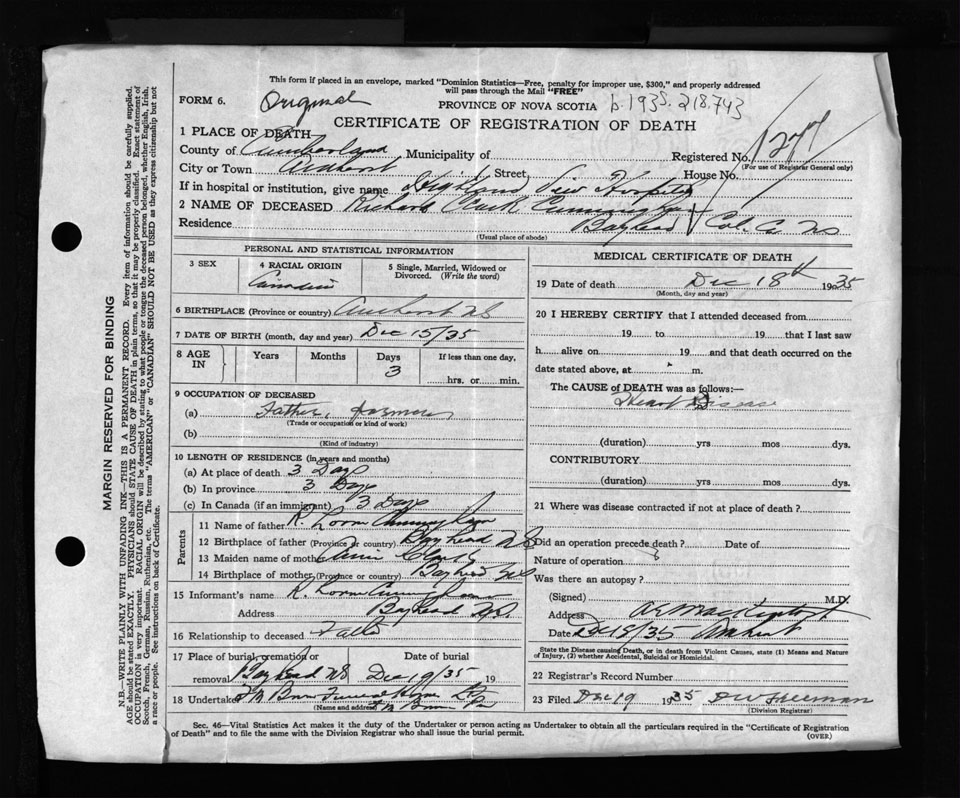 This form if placed in an envelope, marked "Dominion Statistics—Free, penalty for improper use, $300," and properly addressed
will pass through the Mail "FREE"
FORM 6. Original
PROVINCE OF NOVA SCOTIA b. 1935. 218.743
CERTIFICATE OF REGISTRATION OF DEATH
1 PLACE OF DEATH
County of Cumberland Municipality of Registered No.
(For use of Registrar General only)
City or Town Amherst Street; House No.
If in hospital or institution, give name Highland View Hospital
2 NAME OF DECEASED Richard Clark Cunningham
Residence Bayhead Col. Co NS
(Usual place of abode)
PERSONAL AND STATISTICAL INFORMATION
3 SEX
4 RACIAL ORIGIN
Canadian
5 Single, Married, Widowed or
Divorced. (Write the word)
6 BIRTHPLACE (Province or country) Amherst NS
7 DATE OF BIRTH (month, day and year) Dec 15/35
8 AGE
IN
Years Months Days If less than one day,
3
hrs. or min.
9 OCCUPATION OF DECEASED
(a) Father, farmer
(Trade or occupation or kind of work)
(b)
(Kind of industry)
10 LENGTH OF RESIDENCE (in years and months)
(a) At place of death 3 Days
(b) In province 3 Days
(c) In Canada (if an immigrant) 3 Days
Parents
11 Name of father R. Cunningham
12 Birthplace of father (Province or country) Bayhead NS
13 Maiden name of mother
14 Birthplace of mother (Province or country) Bayhead NS
15 Informant's name R. Cunningham
Address Bayhead N.S.
16 Relationship to deceased Father
17 Place of burial, cremation or
removal Bayhead NS
Date of burial
Dec 19/35 19
18 Undertaker Funeral Home
(Name and address)
MEDICAL CERTIFICATE OF DEATH
19 Date of death Dec 18th 1935
(Month, day and year)
20 I HEREBY CERTIFY that I attended deceased from
19 to 19 that I last saw
h alive on 19 and that death occurred on the
date stated above, at m.
The CAUSE of DEATH was as follows:—
Heart Disease
(duration) yrs mos dys.
CONTRIBUTORY
(duration) yrs. mos. dys.
21 Where was disease contracted if not at place of death?
Did an operation precede death? Date of
Nature of operation
Was there an autopsy?
(Signed) M.D.
Address
Date Dec 18/35 Amherst
State the Disease causing Death, or in death from Violent Causes, state (1) Means and Nature
of Injury, (2) whether Accidental, Suicidal or Homicidal.
22 Registrar's Record Number
23 Filed Dec 19 1935 Freeman
(Division Registrar)
Sec. 46—Vital Statistics Act makes it the duty of the Undertaker or person acting as Undertaker to obtain all the particulars required in the "Certificate of Registration
of Death" and to file the same with the Division Registrar who shall issue the burial permit.
(OVER)
MARGIN RESERVED FOR BINDING
N.B.—WRITE PLAINLY WITH UNFADING INK—THIS IS A PERMANENT RECORD. Every item of information should be carefully supplied.
AGE should be stated EXACTLY. PHYSICIANS should STATE CAUSE OF DEATH in plain terms, so that it may be properly classified. Exact statement of
OCCUPATION is very important. RACIAL ORIGIN will be described by stating to what people or tongue the deceased person belonged, whether English, Irish,
Scotch, French, German, Russian, Ruthenian, etc. The terms "AMERICAN" or "CANADIAN" SHOULD NOT BE USED as they express citizenship but not
a race or people. See instructions on back of Certificate.